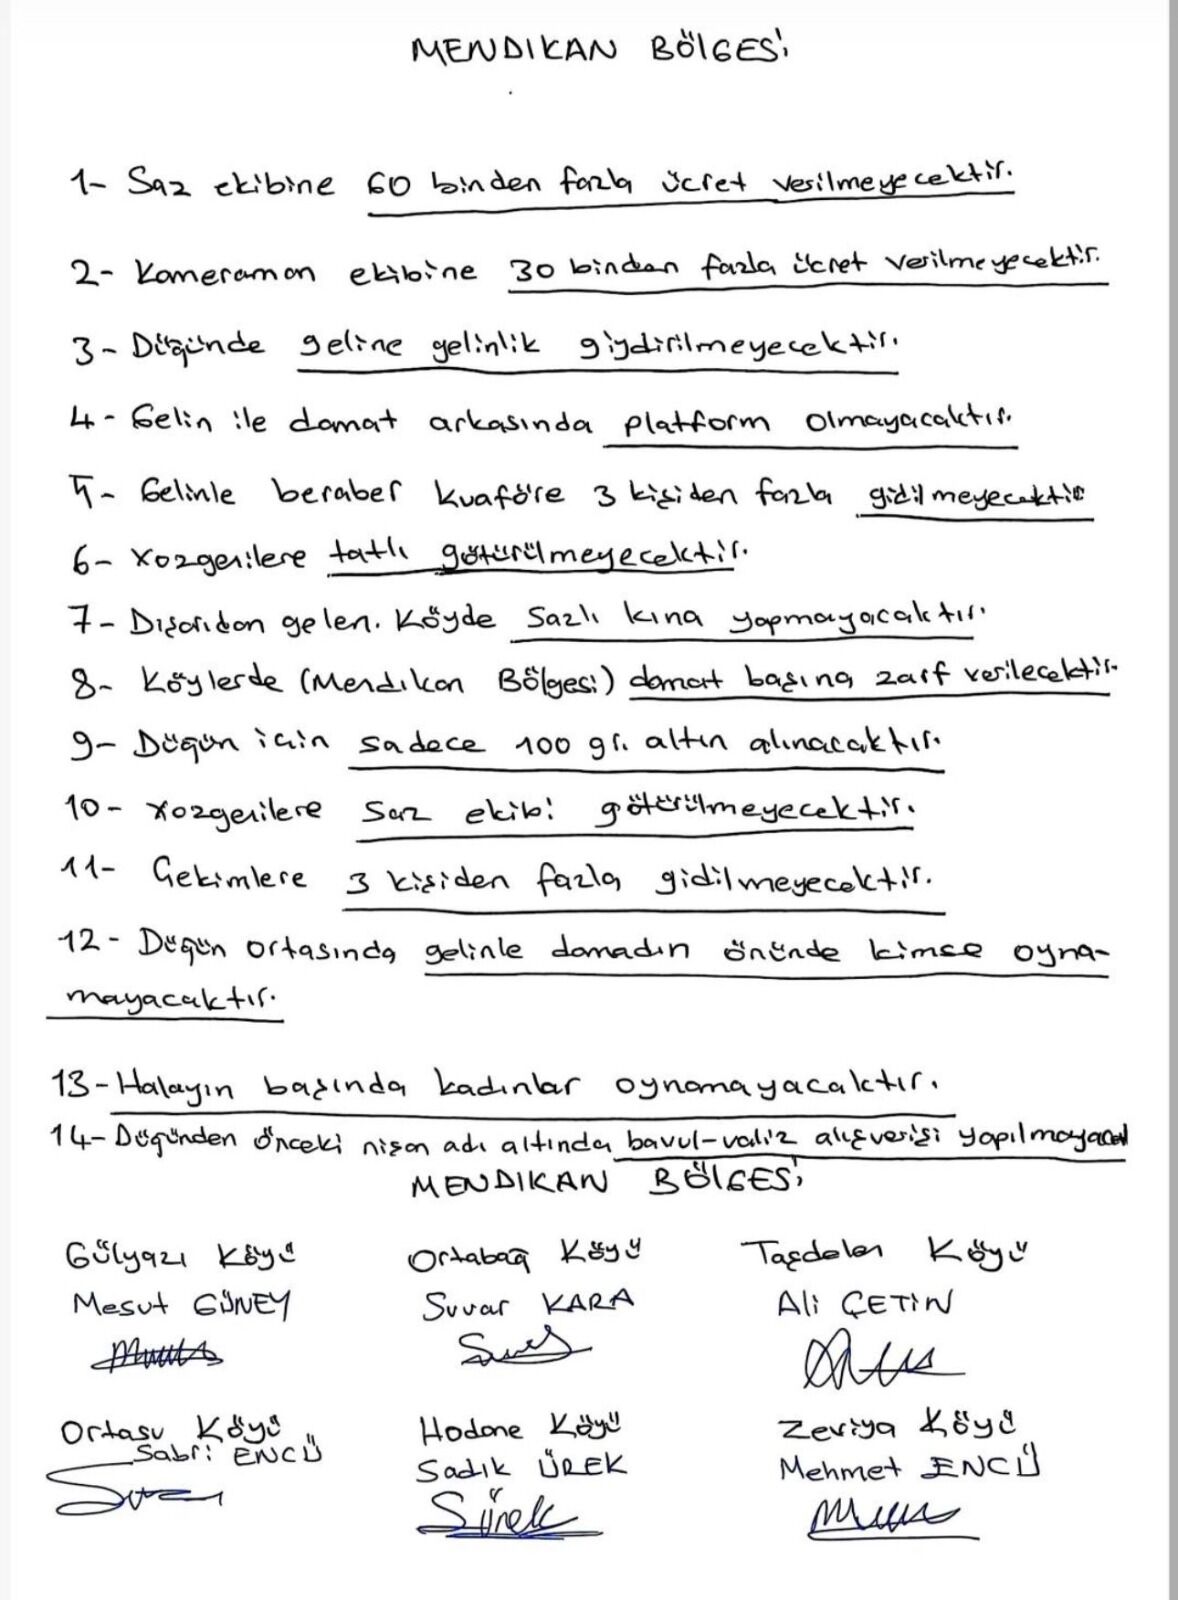 MENDIKAN BÖLGESİ
1- Saz ekibine 60 binden fazla ücret verilmeyecektir.
2- Kameraman ekibine 30 binden fazla ücret verilmeyecektir.
3- Düğünde geline gelinlik giydirilmeyecektir.
4- Gelin ile damat arkasında platform olmayacaktır.
5- Gelinle beraber kuaföre 3 kişiden fazla gidilmeyecektir
6- xozgerilere tatlı götürülmeyecektir.
7- Dışarıdan gelen. Köyde sazlı kına yapmayacaktır.
8- Köylerde (Mendıkan Bölgesi) damat başına zarf verilecektir.
9- Düğün için sadece 100 gr. altın alınacaktır.
10- xozgerilere saz ekibi götürülmeyecektir.
11- Çekimlere 3 kişiden fazla gidilmeyecektir.
12- Düğün ortasında gelinle damadın önünde kimse oyna-
mayacaktır.
13- Halayın başında kadınlar oynamayacaktır.
14- Düğünden önceki nişan adı altında bavul-valiz alışverişi yapılmayacak
MENDIKAN BÖLGESİ
Gülyazı Köyü Ortabağ Köyü Taşdelen Köyü
Mesut GÜNEY Suvar KARA Ali ÇETİN
Ortasu Köyü Hodane Köyü Zeviya Köyü
Sabri ENCÜ Sadık ÜREK Mehmet ENCÜ
Sürek